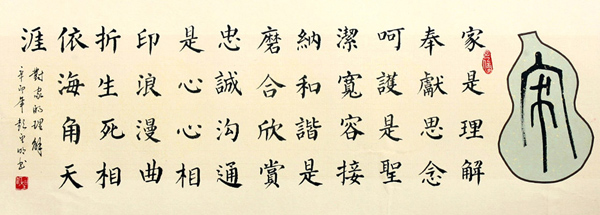 家
家是理解
奉獻思念
呵護是聖
潔寬容接
納和諧是
磨合欣賞
忠誠溝通
是心心相
印浪漫曲
折生死相
依海角天
涯
對家的理解
辛卯年書